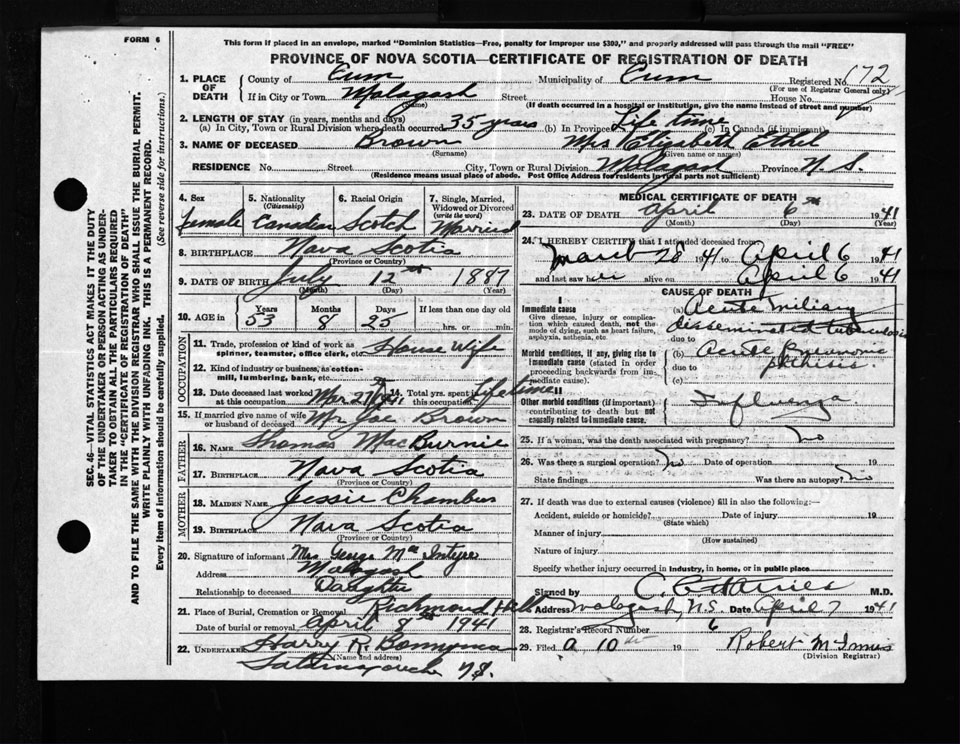 FORM 6
This form if placed in an envelope, marked "Dominion Statistics—Free, penalty for improper use $300," and properly addressed will pass through the mail "FREE"
PROVINCE OF NOVA SCOTIA—CERTIFICATE OF REGISTRATION OF DEATH
SEC. 46—VITAL STATISTICS ACT MAKES IT THE DUTY
OF THE UNDERTAKER OR PERSON ACTING AS UNDER-
TAKER TO OBTAIN ALL THE PARTICULARS REQUIRED
IN THE "CERTIFICATE OF REGISTRATION OF DEATH"
AND TO FILE THE SAME WITH THE DIVISION REGISTRAR WHO SHALL ISSUE THE BURIAL PERMIT.
WRITE PLAINLY WITH UNFADING INK. THIS IS A PERMANENT RECORD.
Every item of information should be carefully supplied. (See reverse side for instructions.)
1. PLACE OF DEATH County of Cum Municipality of Cum Registered No. 172
(For use of Registrar General only)
If in City or Town Malagash Street House No.
(Name) (If death occurred in a hospital or institution, give the name instead of street and number)
2. LENGTH OF STAY (in years, months and days)
(a) In City, Town or Rural Division where death occurred 35 years (b) In Province Life time (c) In Canada (if immigrant)
3. NAME OF DECEASED Brown Mrs Elizabeth Ethel
(Surname) (Given name or names)
RESIDENCE No. Street City, Town or Rural Division Malagash Province N. S.
(Residence means usual place of abode. Post Office Address for residents in rural parts not sufficient)
4. Sex 5. Nationality (Citizenship) 6. Racial Origin 7. Single, Married, Widowed or Divorced (write the word)
female Canadian Scotch Married
8. BIRTHPLACE Nova Scotia
(Province or Country)
9. DATE OF BIRTH July 12th 1887
(Month) (Day) (Year)
10. AGE in Years Months Days If less than one day
53 8 25 hrs. or min.
OCCUPATION
11. Trade, profession or kind of work as
spinner, teamster, office clerk, etc. House Wife
12. Kind of industry or business, as cotton-
mill, lumbering, bank, etc.
13. Date deceased last worked at this occupation Mar 27th/41 14. Total yrs. spent in this occupation Lifetime
15. If married give name of wife
or husband of deceased Mr Brown
FATHER
16. NAME Thomas MacBurnie
17. BIRTHPLACE Nova Scotia
(Province or Country)
MOTHER
18. MAIDEN NAME Jessie Chambers
19. BIRTHPLACE Nova Scotia
(Province or Country)
20. Signature of informant Mrs George Mc Intyre
Address Malagash
Relationship to deceased Daughter
21. Place of Burial, Cremation or Removal Richmond Hill
Date of burial or removal April 8th 1941
22. UNDERTAKER Harry R.
(Name and address)
Tatamagouche N.S.
MEDICAL CERTIFICATE OF DEATH
23. DATE OF DEATH April 6th 1941
(Month) (Day) (Year)
24. I HEREBY CERTIFY that I attended deceased from
March 28 1941 to April 6 1941
and last saw her alive on April 6 1941
CAUSE OF DEATH
I
Immediate cause
Give disease, injury or complica-
tion which caused death, not the
mode of dying, such as heart failure,
asphyxia, asthenia, etc
(a) Acute miliary
disseminated tuberculosis
Morbid conditions, if any, giving rise to
immediate cause (stated in order
proceeding backwards from im-
mediate cause).
(b) Acute Pneumonic
phthisis
(c)
II
Other morbid conditions (if important)
contributing to death but not
causally related to immediate cause.
Influenza
25. If a woman, was the death associated with pregnancy? No
26. Was there a surgical operation? No Date of operation 19
State findings Was there an autopsy? No
27. If death was due to external causes (violence) fill in also the following:—
Accident, suicide or homicide? Date of injury 19
(State which)
Manner of injury
(How sustained)
Nature of injury
Specify whether injury occurred in industry, in home, or in public place
Signed by M.D.
Address Malagash, N.S. Date April 7 1941
28. Registrar's Record Number 6
29. Filed A 10 19 Robert McInnis
(Division Registrar)